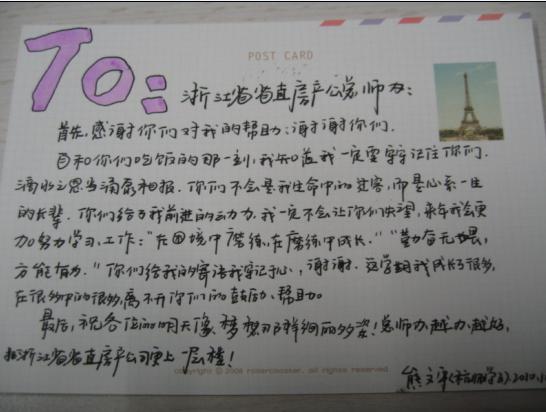 To:
POST CARD
浙江省省直房产公总师办:
首先,感谢你们对我的帮助;谢谢你们.
自和你们吃饭的那一刻,我知道我一定要牢记住你们.
滴水之恩当涌泉相报.你们不会是我生命中的过客,而是心系一生
的长辈.你们给了我前进的动力.我一定不会让你们失望,来年我会更
加努力学习,工作:"在困境中磨练,在磨练中成长.""勤奋无惧,
方能有为."你们给我的寄语我牢记于心,谢谢.这学期我成长了很多,
在很多中的很多,离不开你们的鼓励、帮助.
最后,祝各位的明天像梦想那样绚丽多姿!总师办,越办越好,
祝浙江省省直房产公司更上一层楼!
copyright © 2008 rollercoaster. all rights reserved
熊文